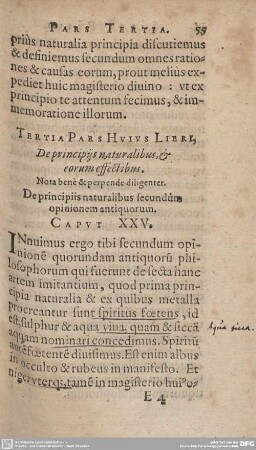 PARS TERTIA. 55
prius naturalia principia discutiemus
& definiemus secundum omnes ratio-
nes & causas eorum, prout melius ex-
pediet huic magisterio diuino : vt ex
principio te attentum fecimus, & im-
memoratione illorum.
TERTIA PARS HVIVS LIBRI,
De principijs naturalibus, &
eorum effectibus.
Nota benè & perpende diligenter.
De principiis naturalibus secundùm
opinionem antiquorum.
CAPVT XXV.
INnuimus ergo tibi secundum opi-
nionē quorundam antiquorū phi-
losophorum qui fuerunt de secta hanc
artem imitantium, quod prima prin-
cipia naturalia & ex quibus metalla
procreantur sunt spiritus fœtens, id
est, sulphur & aqua viua, quam & siccā
aquam nominari concedimus. Spiritū
autē fœtentē diuisimus. Est enim albus
in occulto & rubeus in manifesto. Et
niger vterq;, tamē in magisterio hui⁹ o-
E 4
Aqua sicca.